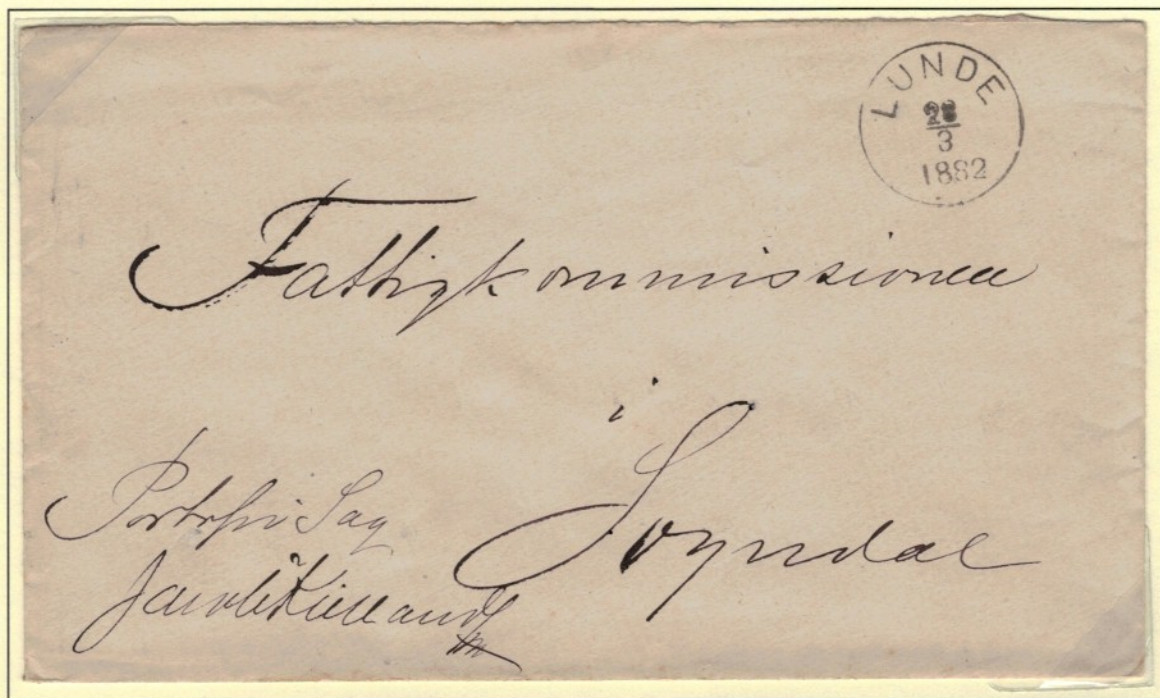 LUNDE
28
3
1882
Fattigkommissionen
i
Sogndal
Portofri Sag
Kielland